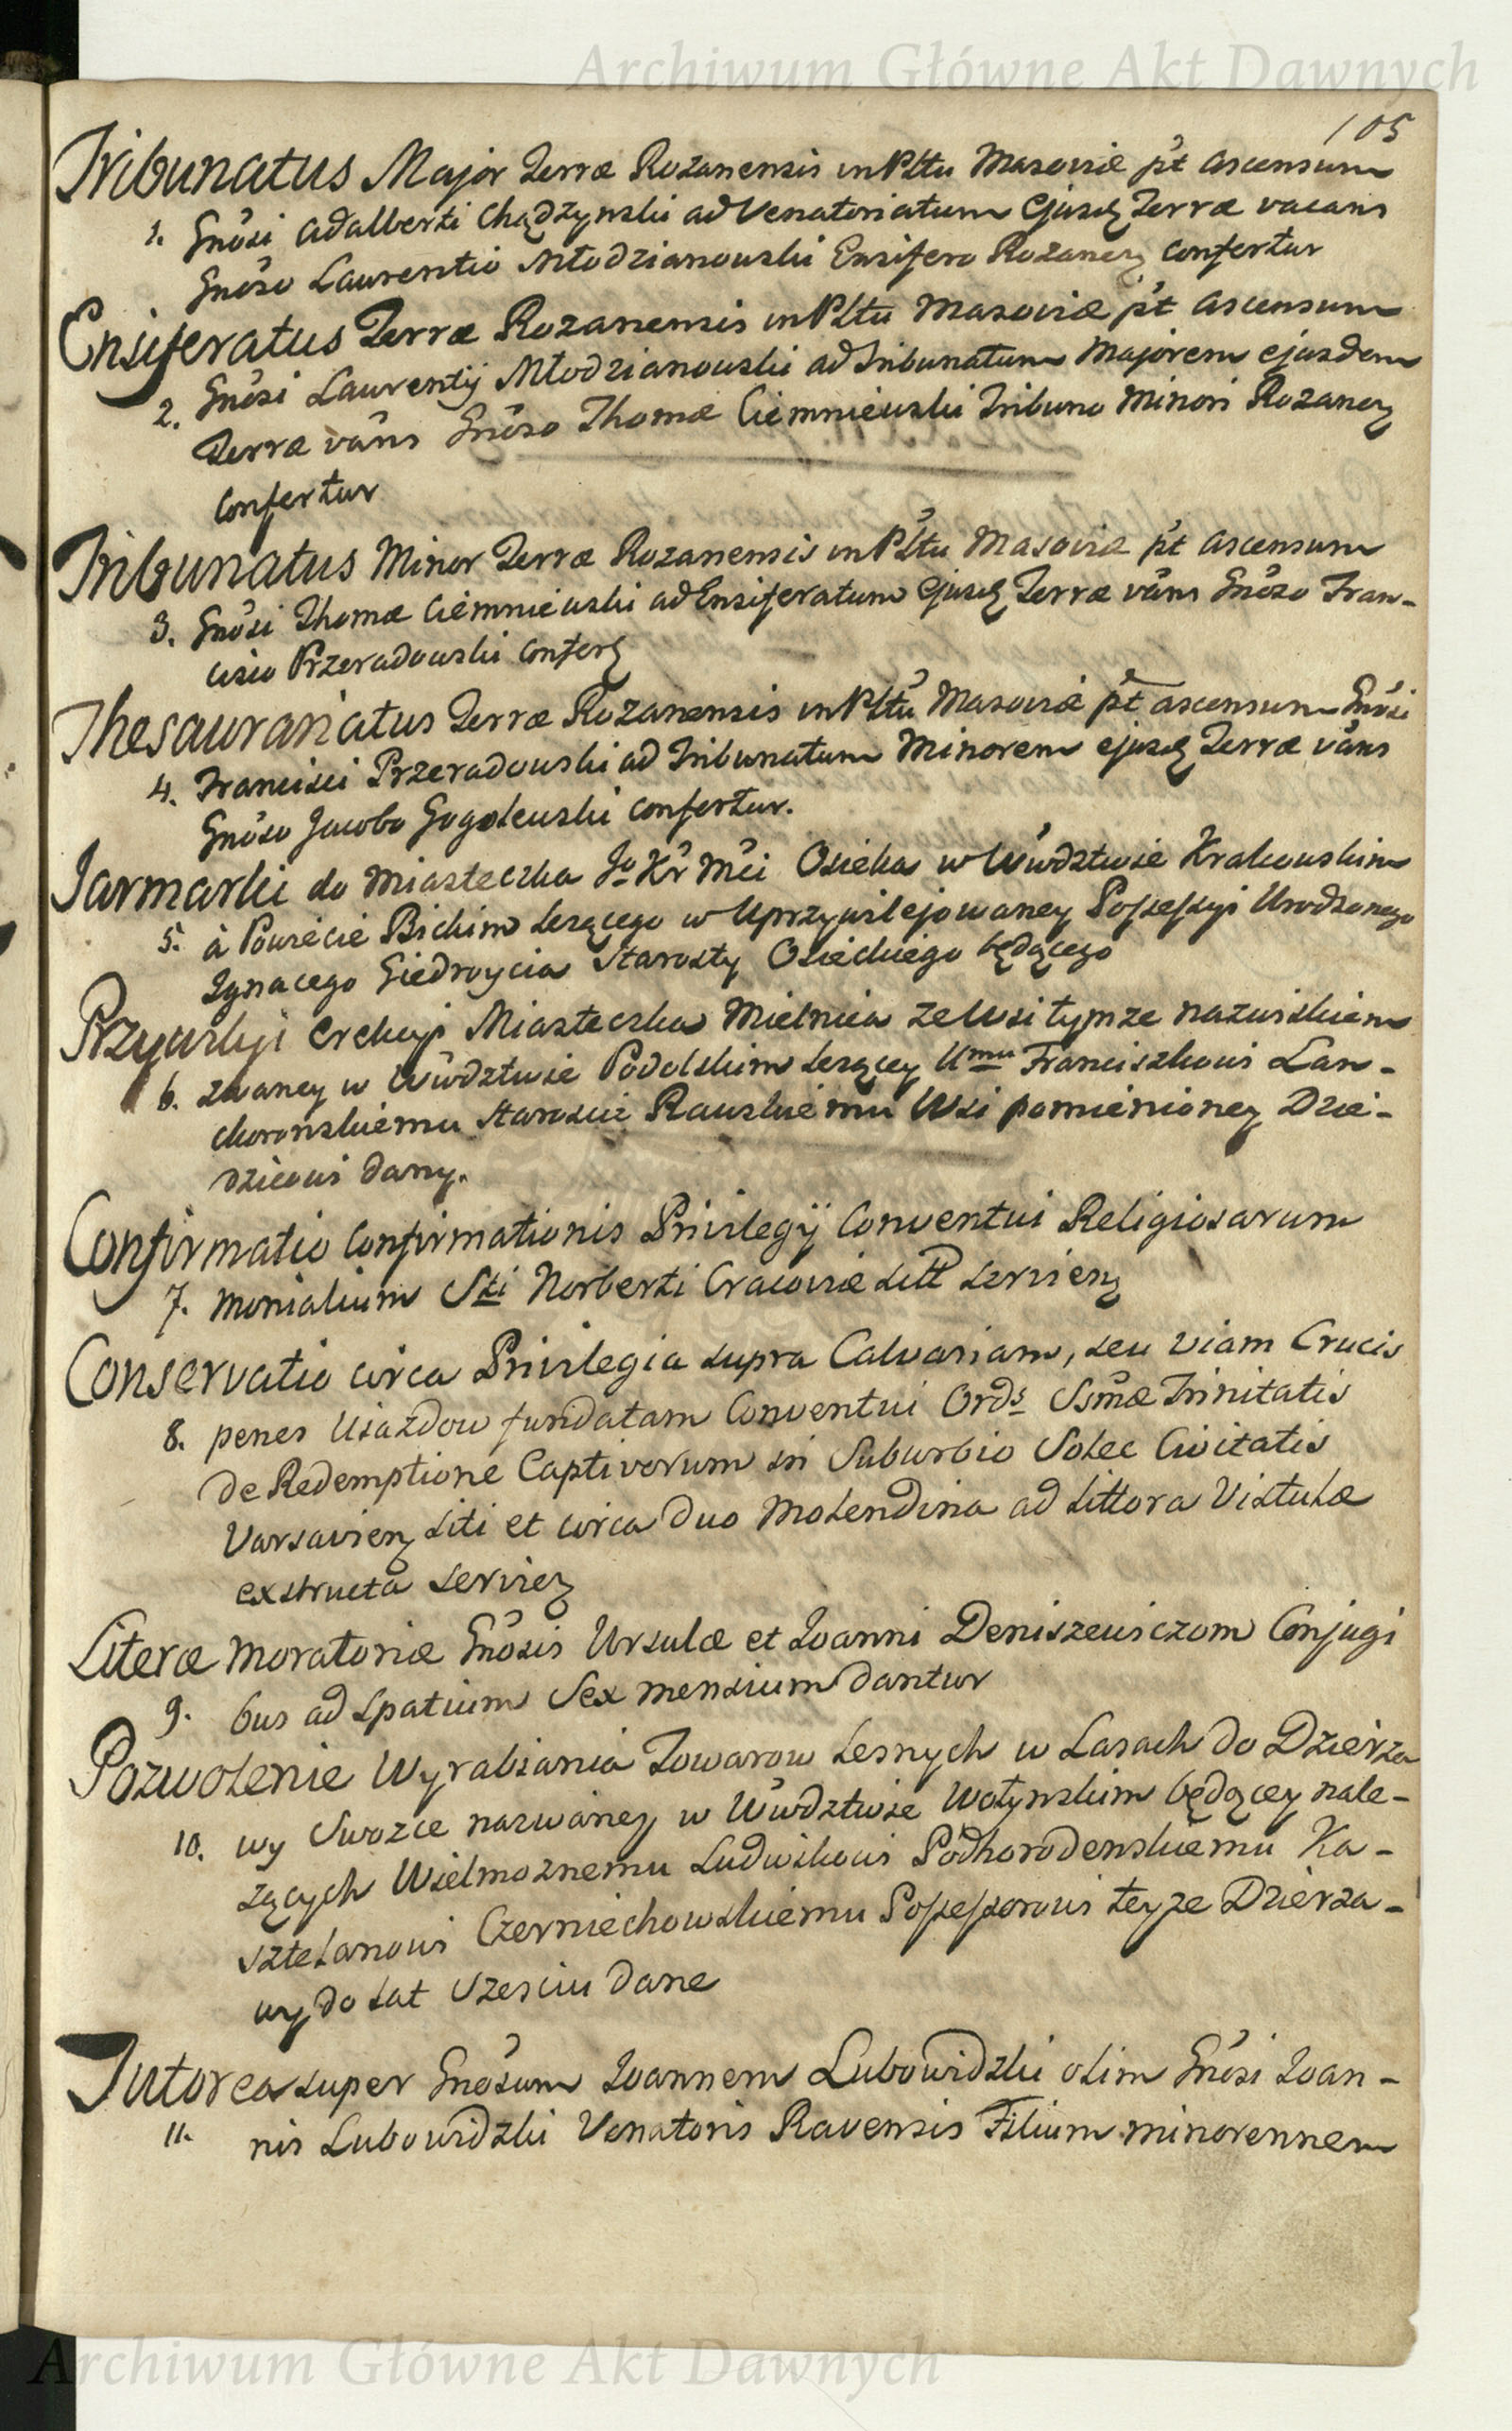 Archiwum Główne Akt Dawnych
105
Tribunatus Major Terræ Rozanensis in Pltu Masoviæ p̃t ascensum
1. Gnõsi Adalberti Chądzynski ad Venatoriatum Ejusd Terræ vacans
Gnõso Laurentio Młodzianowski Ensifero Rozanen confertur
Ensiferatus Terræ Rozanensis in Pltu Masoviæ p̃t ascensum
2. Gnõsi Laurentij Młodzianowski ad Tribunatum Majorem ejusdem
Terræ vãns Gnõso Thomæ Ciemniewski Tribuno Minori Rozanen
confertur
Tribunatus Minor Terræ Rozanensis in Pltu Masoviæ p̃t ascensum
3. Gnõsi Thomæ Ciemniewski ad Ensiferatum Ejusd Terræ vãns Gnõso Fran-
cisco Przeradowski confert
Thesaurariatus Terræ Rozanensis in Pltu Masoviæ p̃t ascensum Gnõsi
4. Francisci Przeradowski ad Tribunatum Minorem ejusd Terræ vãns
Gnõso Jacobo Gogolewski confertur.
Jarmarki do Miasteczka Jo Kr̃ Mci Osieka w Wwdztwie Krakowskim
5. à Powiecie Bickim lezącego w Uprzywilejowaney Possessyi Urodzonego
Ignacego Giedroycia Starosty Osieckiego będącego
Przywilyi Erekcyi Miasteczka Mielnica ze Wsi tymze nazwiskiem
6. zwaney w Wwdztwie Podolskim lezącey Umu Franciszkowi Lan-
ckoronskiemu Staroscie Rawskiemu Wsi pomienioney Dzie-
dzicowi dany.
Confirmatio Confirmationis Privilegÿ Conventui Religiosarum
7. monialium Sti Norberti Cracoviæ Litt servien
Conservatio circa Privilegia supra Calvariam, seu viam Crucis
8. penes Ujazdow fundatam Conventui Ords Ssmæ Trinitatis
de Redemptione Captivorum in Suburbio Solec Civitatis
Varsavien siti et circa duo Molendina ad littora Vistulæ
exstructa servien
Literæ Moratoriæ Gnõsis Ursulæ et Joanni Deniszewiczom Conjugi
9. bus ad spatium Sex mensium dantur
Pozwolenie Wyrabiania Towarow Lesnych w Lasach do Dzierza
10. wy Swozce nazwaney w Wwdztwie Wołynskim będącey nale-
zących Wielmoznemu Ludwikowi Podhorodenskiemu Ka-
sztelanowi Czerniechowskiemu Possessorowi teyze Dzierza-
wy do Lat Szesciu dane
Tutorea super Gnõsum Joannem Lubowidzki olim Gnõsi Joan-
11. nis Lubowidzki Venatoris Ravensis Filium minorennem
Archiwum Główne Akt Dawnych